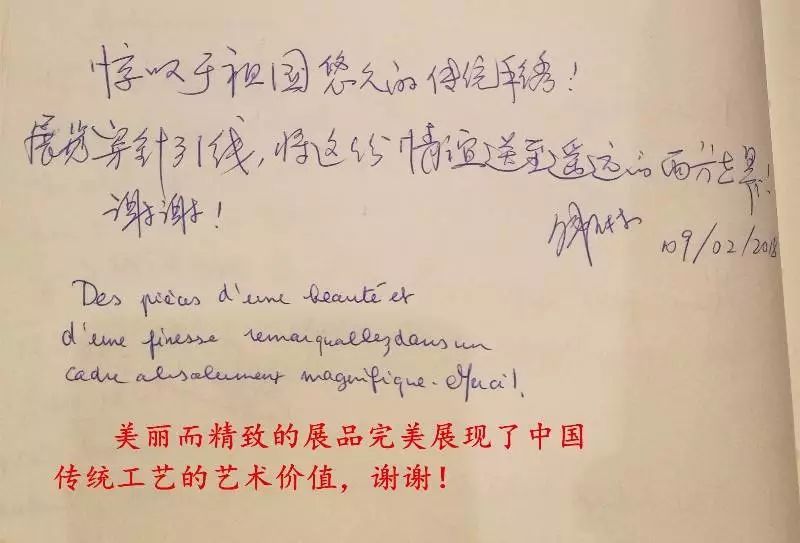 惊叹于祖国悠久的传统手绣!
展览穿针引线,将这份情谊送至遥远的西方世界!
谢谢!
09/02/2018
Des pièces d'une beauté et
d'une finesse remarquables dans un
cadre absolument magnifique. Merci!
美丽而精致的展品完美展现了中国
传统工艺的艺术价值，谢谢！